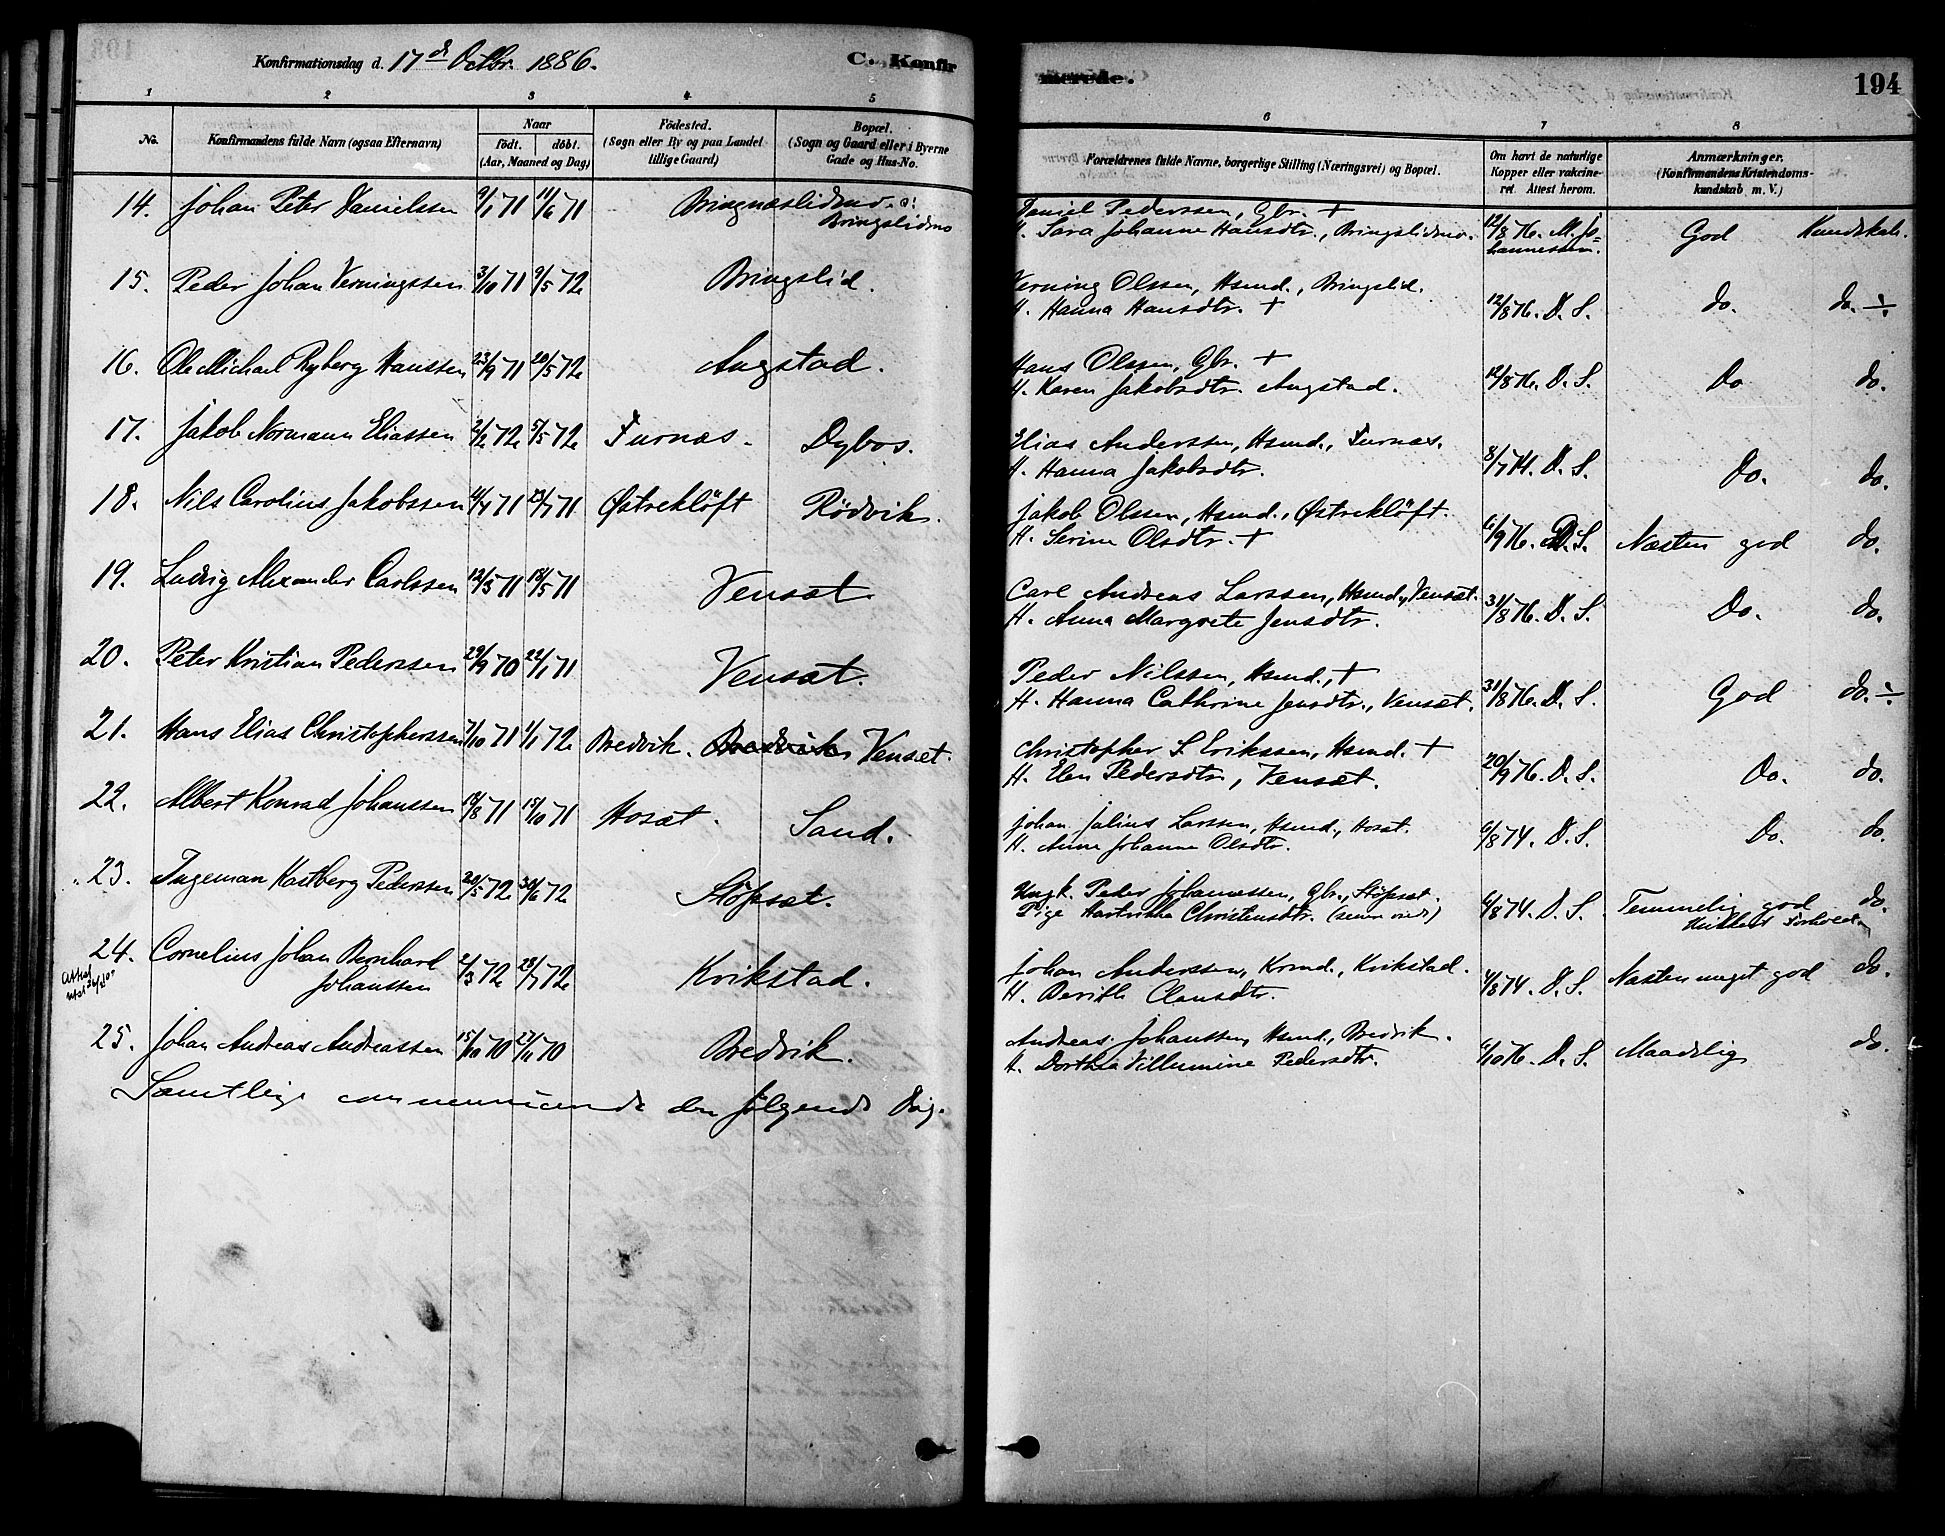 Konfirmationsdag d. 17de Octbr. 1886.
C. Konfirmerede.
194
1 2 3 4 5 6 7 8
No. Konfirmandens fulde Navn (ogsaa Efternavn) Naar födt. döbt. (Aar, Maaned og Dag) Födested. (Sogn eller By og paa Landet tillige Gaard) Bopæl. (Sogn og Gaard eller i Byerne Gade og Hus-No. Forældrenes fulde Navne, borgerlige Stilling (Næringsvei) og Bopæl. Om havt de naturlige Kopper eller vakcineret. Attest herom. Anmærkninger. (Konfirmandens Kristendomskundskab m. V.)
14. Johan Peter Danielssen 9/1 71 11/6 71 Bringnæslidmo o: Bringslidmo
Daniel Pederssen, Gbr. +
H. Sara Johanne Hansdtr., Bringslidmo. 12/8 76. M. Johannessen. God Kundskab.
15. Peder Johan Verningssen 3/10 71 9/5 72 Bringslid.
Verning Olssen, Hsmd., Bringslid.
H. Hanna Hansdtr. + 12/8 76. D. S. do. do. ÷
16. Ole Michael Ryberg Hanssen 23/9 71 20/5 72 Augstad.
Hans Olssen, Gbr. +
H. Karen Jakobsdtr. Augstad. 12/8 76. D. S. Do do.
17. Jakob Normann Eliassen 2/2 72 5/5 72 Furnæs. Dybos.
Elias Anderssen, Hsmd., Furnæs.
H. Hanna Jakobsdtr. 8/7 74. D. S. Do. do.
18. Nils Carolius Jakobssen 4/4 71 23/7 71 Østreklöft Rödvik.
Jakob Olssen, Hsmd., Østreklöft.
H. Serine Olsdtr. + 6/9 76. D. S. Næsten god do.
19. Ludvig Alexander Carlssen 12/3 71 18/5 71 Vensæt.
Carl Andreas Larssen, Hsmd., Vensæt.
H. Anna Margrete Jensdtr. 31/8 76. D. S. Do. do.
20. Peter Kristian Pederssen 29/9 70 22/1 71 Vensæt.
Peder Nilssen, Hsmd., +
H. Hanna Cathrine Jensdtr., Vensæt. 31/8 76. D. S. God do. ÷
21. Hans Elias Christopherssen 7/10 71 1/1 72 Bredvik. Bredvik Vensæt.
Christopher S. Erikssen, Hsmd. +
H. Elen Pedersdtr, Vensæt. 20/9 76. D. S. Do. do.
22. Albert Konrad Johanssen 18/8 71 15/10 71 Hosæt. Sand.
Johan Julius Larssen, Hsmd., Hosæt.
H. Anne Johanne Olsdtr. 6/8 74. D. S. Do. do.
23. Ingeman Kastberg Pederssen 20/5 72 30/6 72 Störset.
Ungk. Peder Johannessen, Gbr., Störset.
Pige Hartvikka Christensdtr. 6/8 74. D. S. Temmelig god do.
24. Cornelius Johan Bernhard 2/3 72 28/7 72 Kvikstad.
Johanssen
Johan Anderssen, Krmd., Kvikstad.
H. Berith Clausdtr. 4/8 74. D. S. Næsten meget god do.
25. Johan Andreas Andreassen 15/10 70 27/11 70 Bredvik.
Andreas Johanssen, Hsmd., Bredvik.
H. Dorthea Villumine Pedersdtr. 6/10 76. D. S. Maadelig do.
Samtlige communicerede den følgende Dag.